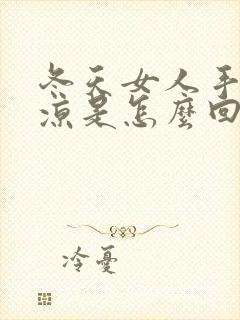 冬天女人手
涼是怎麼回
冷憂